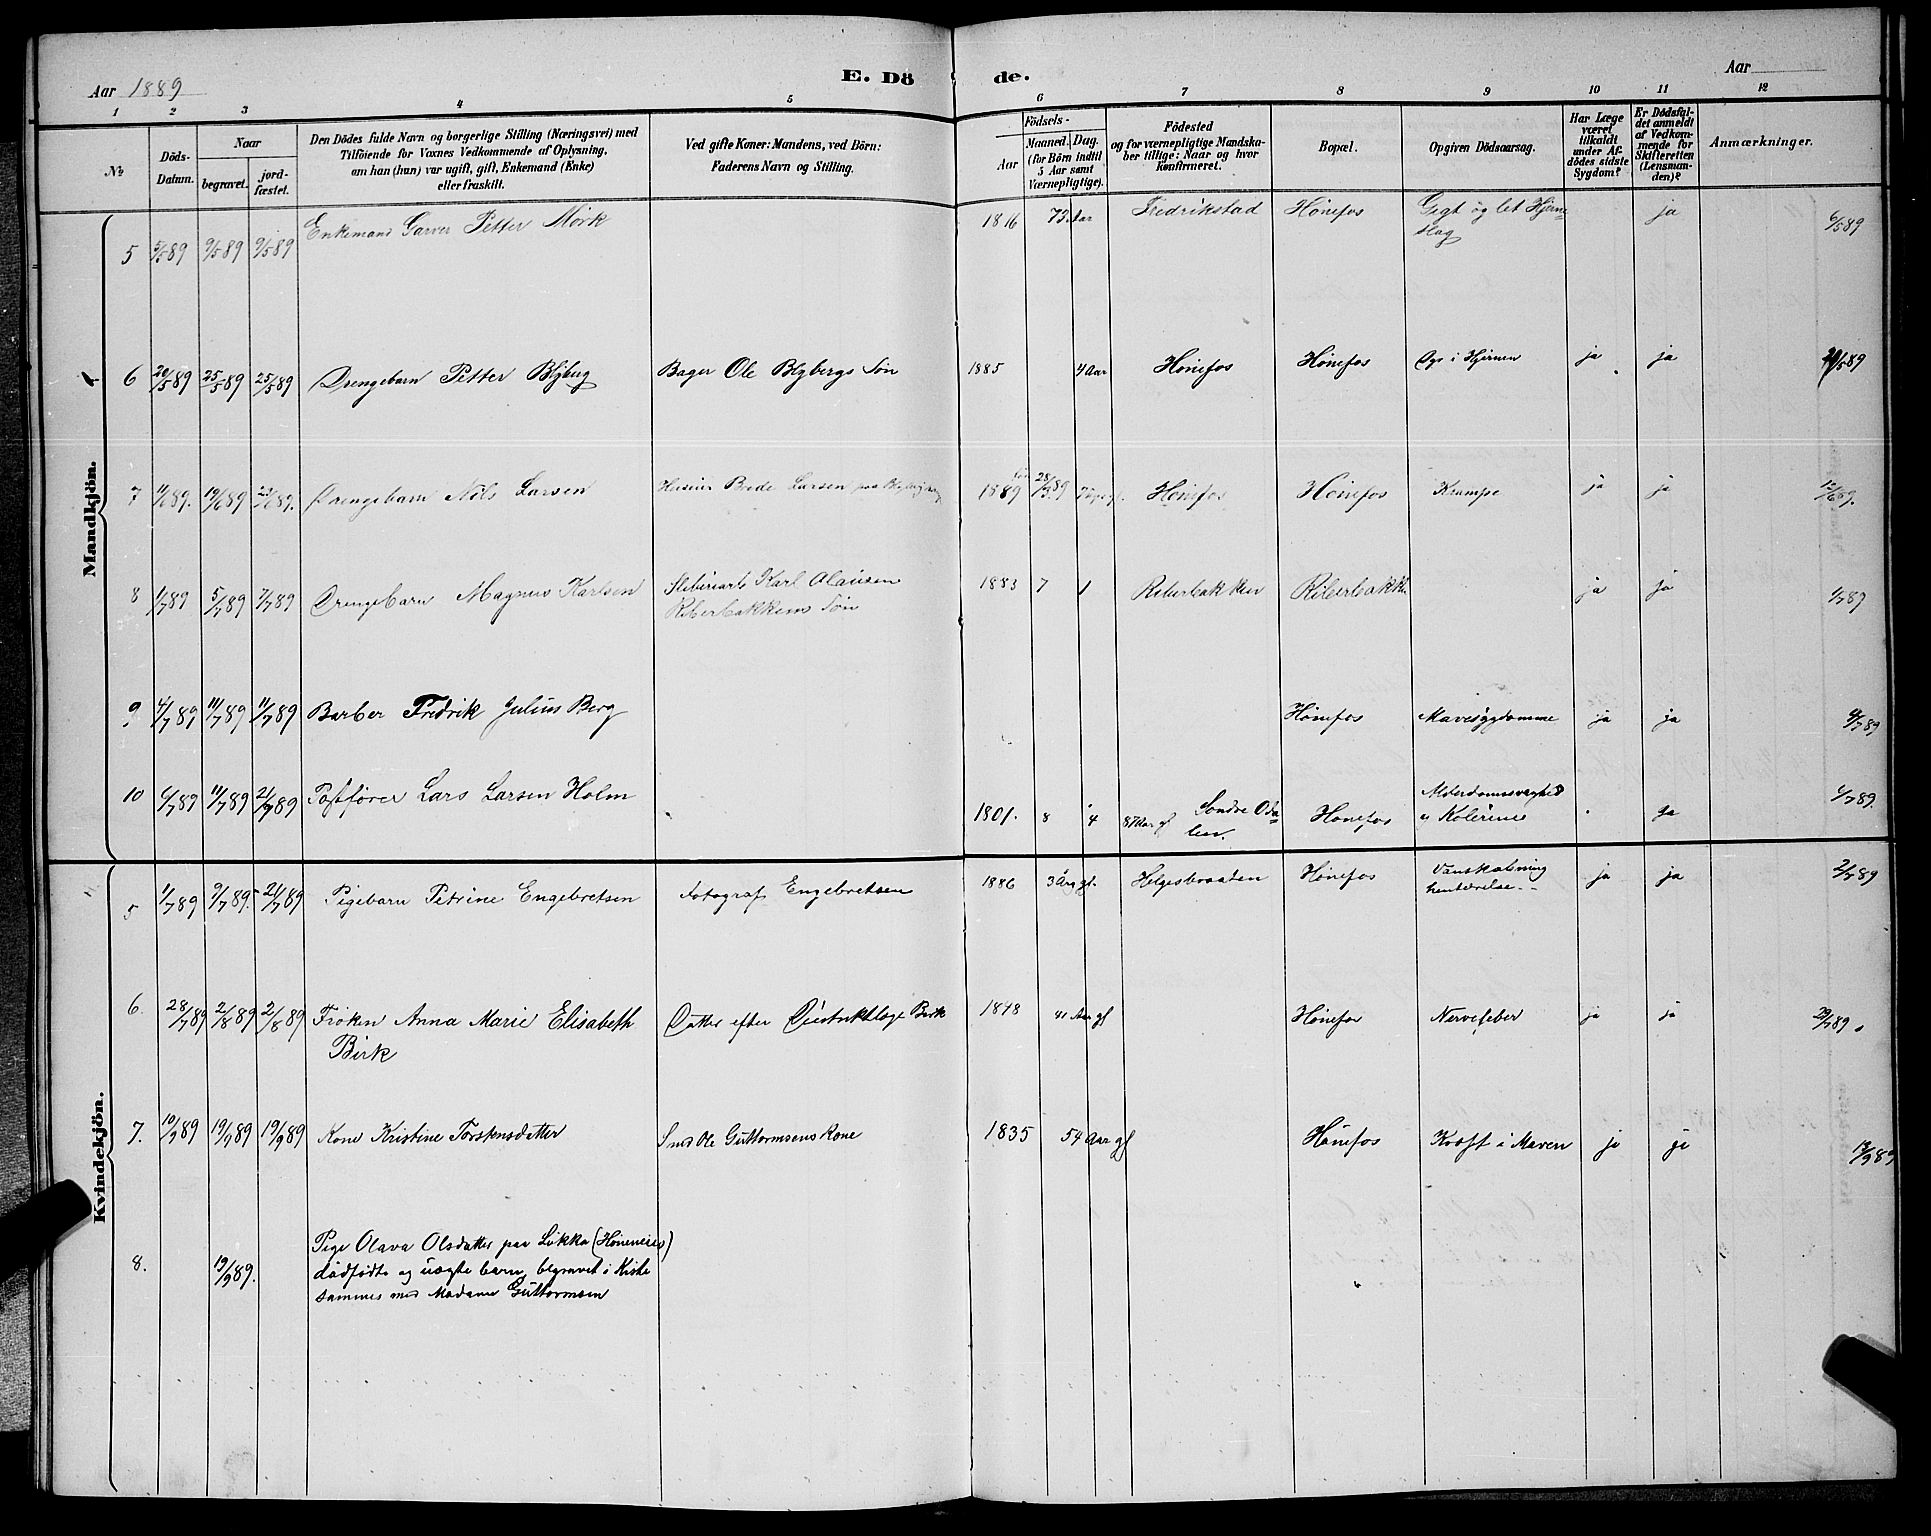 E. Dö de.
Aar 1889
Aar
1 2 3 4 5 6 7 8 9 10 11 12
No
Döds-
Datum.
Naar
begravet.
jord-
fæstet.
Den Dödes fulde Navn og borgerlige Stilling (Næringsvei) med
Tilföiende for Voxnes Vedkommende af Oplysning,
om han (hun) var ugift, gift, Enkemand (Enke)
eller fraskilt.
Ved gifte Koner: Mandens, ved Börn:
Faderens Navn og Stilling.
Födsels-
Aar
Maaned. Dag.
(for Börn indtil
5 Aar samt
Værnepligtige).
Födested
og for værnepligtige Mandska-
ber tillige: Naar og hvor
konfirmeret.
Bopæl.
Opgiven Dödsaarsag.
Har Læge
været
tilkaldt
under Af-
dödes sidste
Sygdom?
Er Dödsfal-
det anmeldt
af Vedkom-
mende for
Skifteretten
(Lensman-
den)?
Anmærkninger.
Mandkjön.
5 5/5 89 9/5 89 9/5 89 Enkemand Garver Petter Mörk 1816 73 Aar Fredrikstad Hönefos Gigt og let Hjerne
slag ja 6/5 89
6 20/5 89 25/5 89 25/5 89 Drengebarn Petter Blyberg Bager Ole Blybergs Sön 1885 4 Aar Hönefos Hönefos i Hjernen ja ja /5 89
7 11/6 89. 19/6 89 23/6 89. Drengebarn Nils Larsen Brede Larsen paa 1889 28/3 89 Hönefos Hönefos Krampe ja ja 12/6 89.
8 1/7 89 5/7 89 7/7 89 Drengebarn Magnus Karlsen Karl Olausen
Riberbakkens Sön 1883 7 1 Riberbakken Riberbakk. ja ja 1/7 89
9 4/7 89 11/7 89 11/7 89 Barber Fredrik Julius Berg Hönefos Mavesygdomme ja ja 4/7 89
10 6/7 89 11/7 89 21/7 89 Postförer Lars Larsen Holm 1801. 8 4 87 Aar gl Söndre Oda
len. Hönefos Alderdomssvaghed
og Kolerine ja 6/7 89.
Kvindekjön.
5 1/7 89 9/7 89. 21/7 89 Pigebarn Petrine Engebretsen Fotograf Engebretsen 1886 3 Aar gl. Helgesbraaten Hönefos
ja ja 2/7 89
6. 28/7 89 2/8 89 2/8 89 Fröken Anna Marie Elisabeth
Birk Datter efter Distriktlæge Birk 1848 41 Aar gl Hönefos Nervefeber ja ja 29/7 89.
7. 10/9 89 19/9 89 19/9 89 Kone Kristine Torstensdatter Smed Ole Guttormsens Kone 1835 54 Aar gl Hönefos Kræft i Maven ja ja 13/9 89
8. 19/9 89. Pige Olava Olsdatter paa Lökka (Höneneie)
dödfödte og uægte barn, begravet i Kiste
sammes med Madame Guttormsen